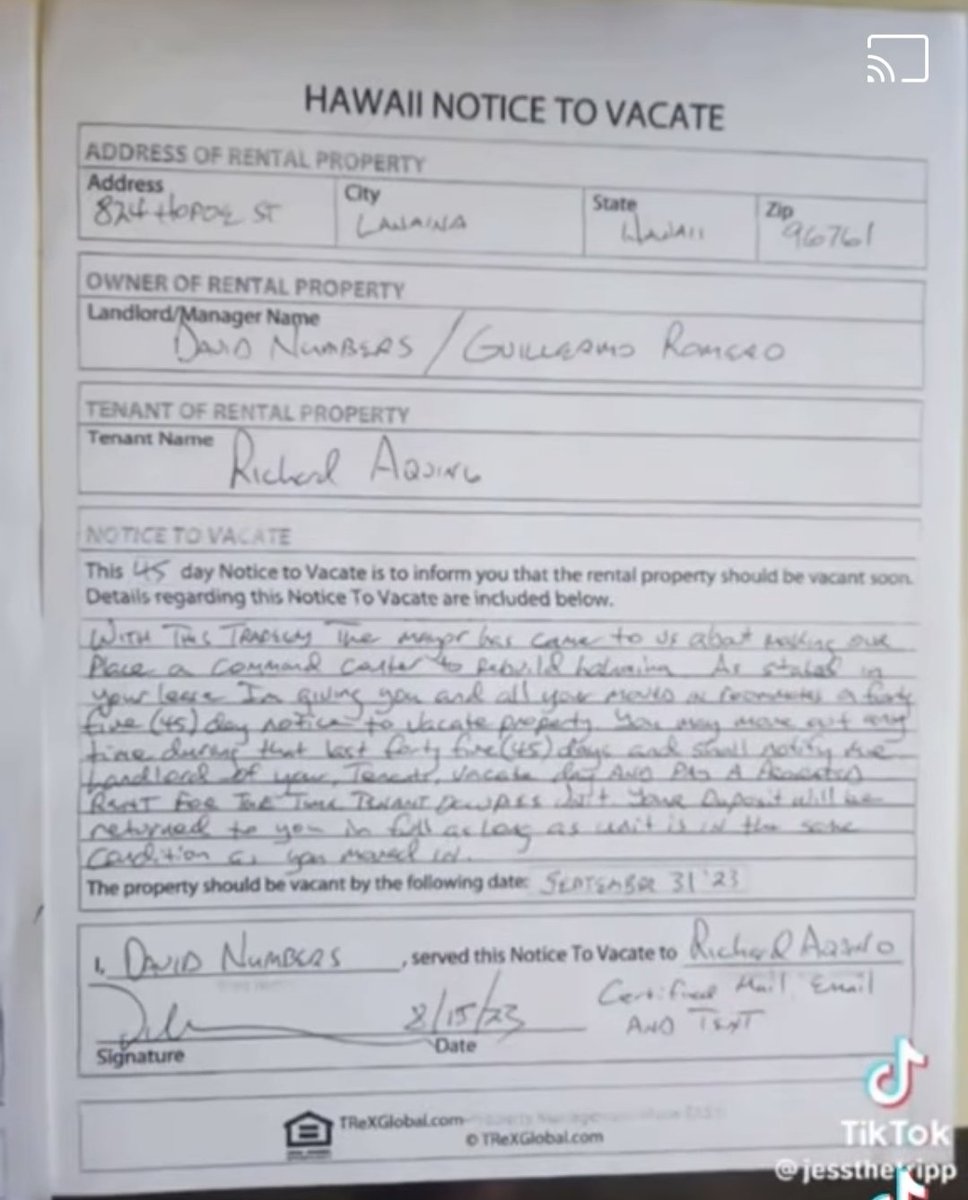 HAWAII NOTICE TO VACATE
ADDRESS OF RENTAL PROPERTY
Address City State Zip
824 HOPOE ST LAHAINA HAWAII 96761
OWNER OF RENTAL PROPERTY
Landlord/Manager Name
DAVID NUMBERS / GUILLERMO ROMERO
TENANT OF RENTAL PROPERTY
Tenant Name
Richard AQUINO
NOTICE TO VACATE
This 45 day Notice to Vacate is to inform you that the rental property should be vacant soon.
Details regarding this Notice To Vacate are included below.
WITH THIS TRAGEDY The mayor has came to us about making our
Place a command center to rebuild As stated in
your lease Im giving you and all your roommates a forty
five (45) day notice to vacate property. You may move out any
time during that last forty five (45) days and shall notify the
Landlord of your, Tenants, vacate AND PAY A
RENT FOR THE TIME TENANT unit. Your Deposit will be
returned to you in full as long as unit is in the same
condition as you moved in.
The property should be vacant by the following date: SEPTEMBER 31 '23
I, DAVID NUMBERS, served this Notice To Vacate to Richard AQUINO
8/15/23 Certified Mail, Email
AND TEXT
Signature Date
TReXGlobal.com
© TReXGlobal.com
TikTok